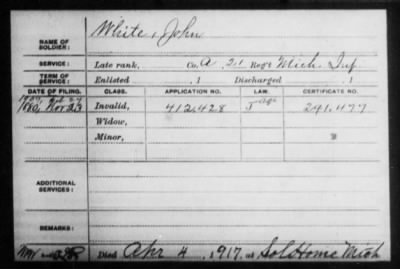 NAME OF SOLDIER: White, John
SERVICE: Late rank, Co. A, 21 Reg't Mich. Inf.
TERM OF SERVICE: Enlisted , 1 Discharged , 1
DATE OF FILING. CLASS. APPLICATION NO. LAW. CERTIFICATE NO.
1880, Nov 23 Invalid, 412.428 291.477
Widow,
Minor,
ADDITIONAL SERVICES:
REMARKS:
Died Apr 4, 1917, at Sol Home Mich